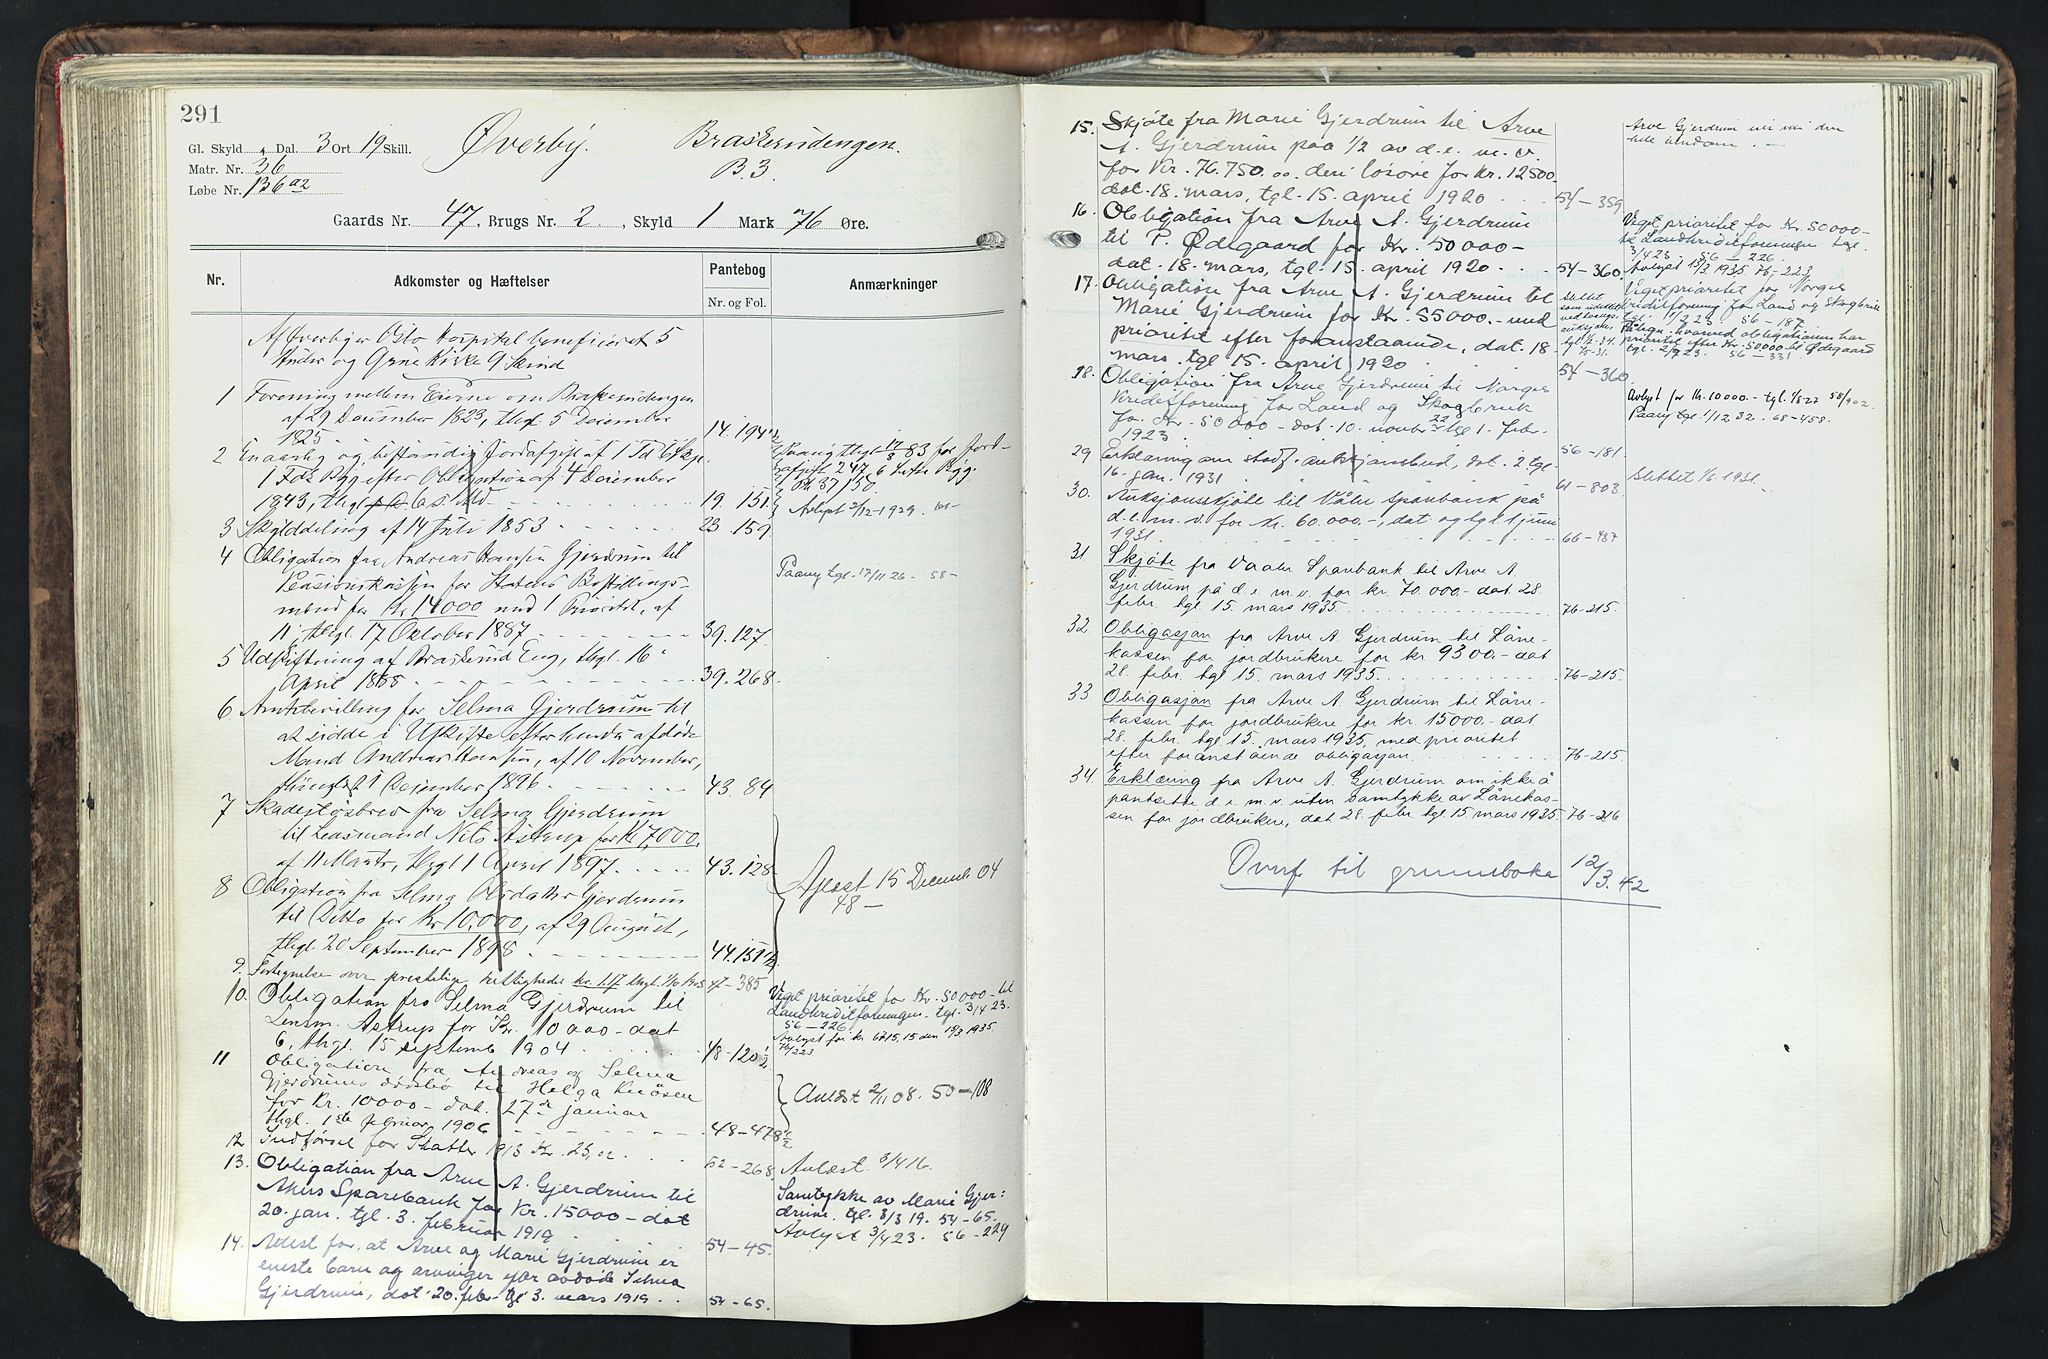 291
Gl. Skyld „ Dal. 3 Ort 19 Skill.
Matr. Nr. 36
Løbe Nr. 136 a2
Øverby.
Braskerudengen.
B.3.
Gaards Nr. 47, Brugs Nr. 2, Skyld 1 Mark 76 Øre.
Nr.
Adkomster og Hæftelser
Pantebog
Nr. og Fol.
Anmærkninger
Af Øverby er Oslo Hospital beneficeret 5
og Kirke 9 Skind
1 Forening mellem Eierne om Braskerudengen
af 29 December 1823, thgl. 5 December
1825. 14. 194 1/2
2 En aarlig og bestandig Jordafgift af 1 Td 6 Skp.
1 Fdk Byg efter Obligation af 4 December
1843, thgl. 6 s. Md 19. 151
3 Skylddeling af 14 Juli 1853 23 159
4 Obligation fra Andreas Hansen Gjerdrum til
Pensionskassen for Statens Bestillings-
mænd for Kr 14000 med 1 Prioritet, af
11, thgl. 17 Oktober 1887 39. 127
5 Udskiftning af Braskerud Eng, thgl. 16
April 1888 39. 268
6 Amtsbevilling for Selma Gjerdrum til
at sidde i Uskifte efter hendes afdøde
Mand Andreas Hansen, af 10 November,
thinglæst 1 December 1896 43. 84
7 Skadesløsbrev fra Selma Gjerdrum
til Lensmand Nils Astrup for Kr 7,000,
af 11 Marts, thgl 1 April 1897 43. 128
8 Obligation fra Selma Olsdatter Gjerdrum
til Ditto for Kr 10,000, af 29 August,
thgl. 20 September 1898 44. 151 1/2
9. Fortegnelse over prestelige rettigheder kr. 1.17 thgl. 47-385
10. Obligation fra Selma Gjerdrum til
Lensm. Astrup for Kr. 10000 - dat
6, thgl. 15 septemb 1904 48-120 1/2
11 Obligation fra Andreas og Selma
Gjerdrums dødsbo til Helga Knösen
for Kr. 10000 - dat. 27de januar
thgl. 1ste februar 1906 48-478 1/2
12 Indførsel for Skatter 1913 Kr. 25, 52-268
13. Obligation fra Arve A. Gjerdrum til
Akers Sparebank for Kr. 15000 - dat
20. jan. tgl. 3. februar 1919 54-45.
14. Attest for, at Arve og Marie Gjerdrum er
eneste barn og arvinger efter avdøde Selma
Gjerdrum, dat. 20. febr. tgl 3. mars 1919 54-65.
Paany thgl 17/8 83 for Jord-
afgift 247, 6 Byg.
37, 150
Avlyst 2/12-1929. 61-
Paany tgl. 17/11 26 - 58 -
Aflæst 15 Decemb 04
48 -
Veget prioritet for Kr. 50000 - til
Landkreditforeningen. tgl. 3/4 23.
56 - 226
Avlyst for kr 6715,15 den 15/3 1935
76/223
Avlæst 2/11 08. 50-108
Avlæst 3/4 16.
Samtykke av Marie Gjer-
drum. tgl. 3/3 19. 54-65.
Avlyst 3/4 23. 56-229
15. Skjøte fra Marie Gjerdrum til Arve
A. Gjerdrum paa 1/2 av d.e. m.v.
for Kr. 76.750.00. deri løsøre for kr. 12500
dat. 18. mars, tgl. 15. april 1920 54-359
16. Obligation fra Arve A. Gjerdrum
til P. Ødegaard for Kr. 50000 -
dat. 18. mars, tgl. 15. april 1920 54-360
17. Obligation fra Arve A. Gjerdrum til
Marie Gjerdrum for Kr. 55000.- med
prioritet efter foranstaaende, dat. 18.
mars. tgl 15. april 1920 54-360
18. Obligation fra Arve Gjerdrum til Norges
Kreditforening for Land og Skogbruk
for Kr. 50000 - dat. 10. novbr 22 tgl 1. febr.
1923 56-181
29 Erklæring om stadf. auksjonsbud, dat. 2 tgl.
16. jan. 1931 61-803
30. Auksjonsskjøte til Våler sparebank på
d.e. m.v. for Kr. 60.000.-, dat og tgl 1 juni
1931 66-487
31. Skjøte fra Vaaler Sparebank til Arve A.
Gjerdrum på d.e. m.v. for kr. 70.000.- dat 28.
febr. tgl 15. mars 1935 76-215
32 Obligasjon fra Arve A Gjerdrum til Låne-
kassen for jordbrukere for kr 9300.- dat
28. febr. tgl 15. mars 1935 76-215
33 Obligasjon fra Arve A. Gjerdrum til Låne-
kassen for jordbrukere for kr. 15000.- dat
28. febr. tgl 15. mars 1935, med prioritet
efter foranstående obligasjon 76-215
34. Erklæring fra Arve A. Gjerdrum om ikke å
pantsette d.e. m.v. uten samtykke av Lånekas-
sen for jordbrukere, dat 28. febr. tgl. 15. mars 1935 76-216
Overf til grunnboka 12/3.42
Arve Gjerdrum eier nu den
hele eiendom.
Veget prioritet for Kr. 50000 -
til Landkreditforeningen tgl.
3/4 23. 56 - 226.
Avlyst 15/3 1935 76-223
Slettet
som udækket
ved tvangs-
auksjon,
Veget prioritet for Norges
kreditforening for Land og Skogbruk
tgl. 1/2 23 56 - 187
Påtegn. hvorved obligationen har
prioritet efter Kr. 50.000 til Ødegaard
tgl. 2/7 23. 56 - 331
Avlyst for kr. 10000.- tgl. 1/5 27 58/902.
Paany tgl 1/12 32. 68-458.
Slettet 1/6 1931.